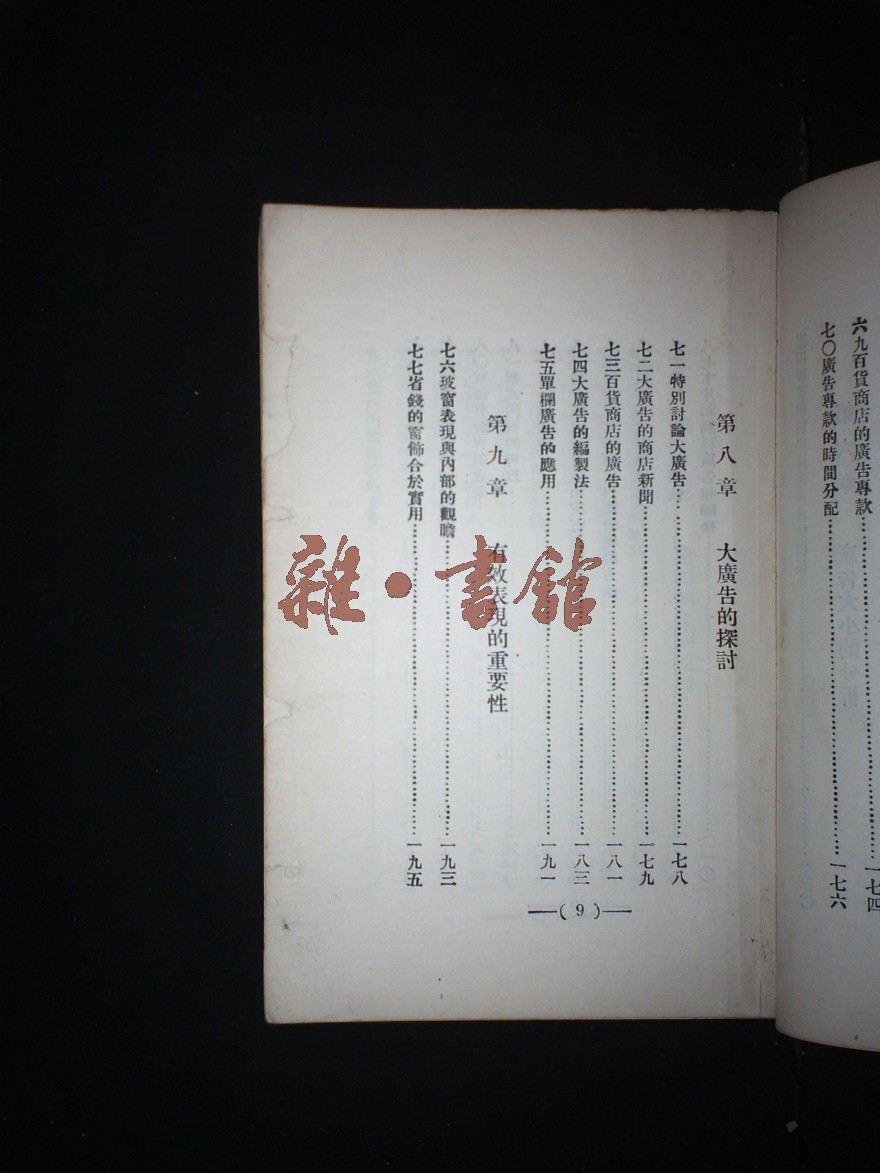 六九百貨商店的廣告專款……一七四
七〇廣告專款的時間分配……一七六
第八章 大廣告的探討
七一特別討論大廣告……一七八
七二大廣告的商店新聞……一七九
七三百貨商店的廣告……一八一
七四大廣告的編製法……一八三
七五單欄廣告的應用……一九一
第九章 有效表現的重要性
七六玻窗表現與內部的觀瞻……一九三
七七省錢的窗飾合於實用……一九五
—( 9 )—
雜·書館